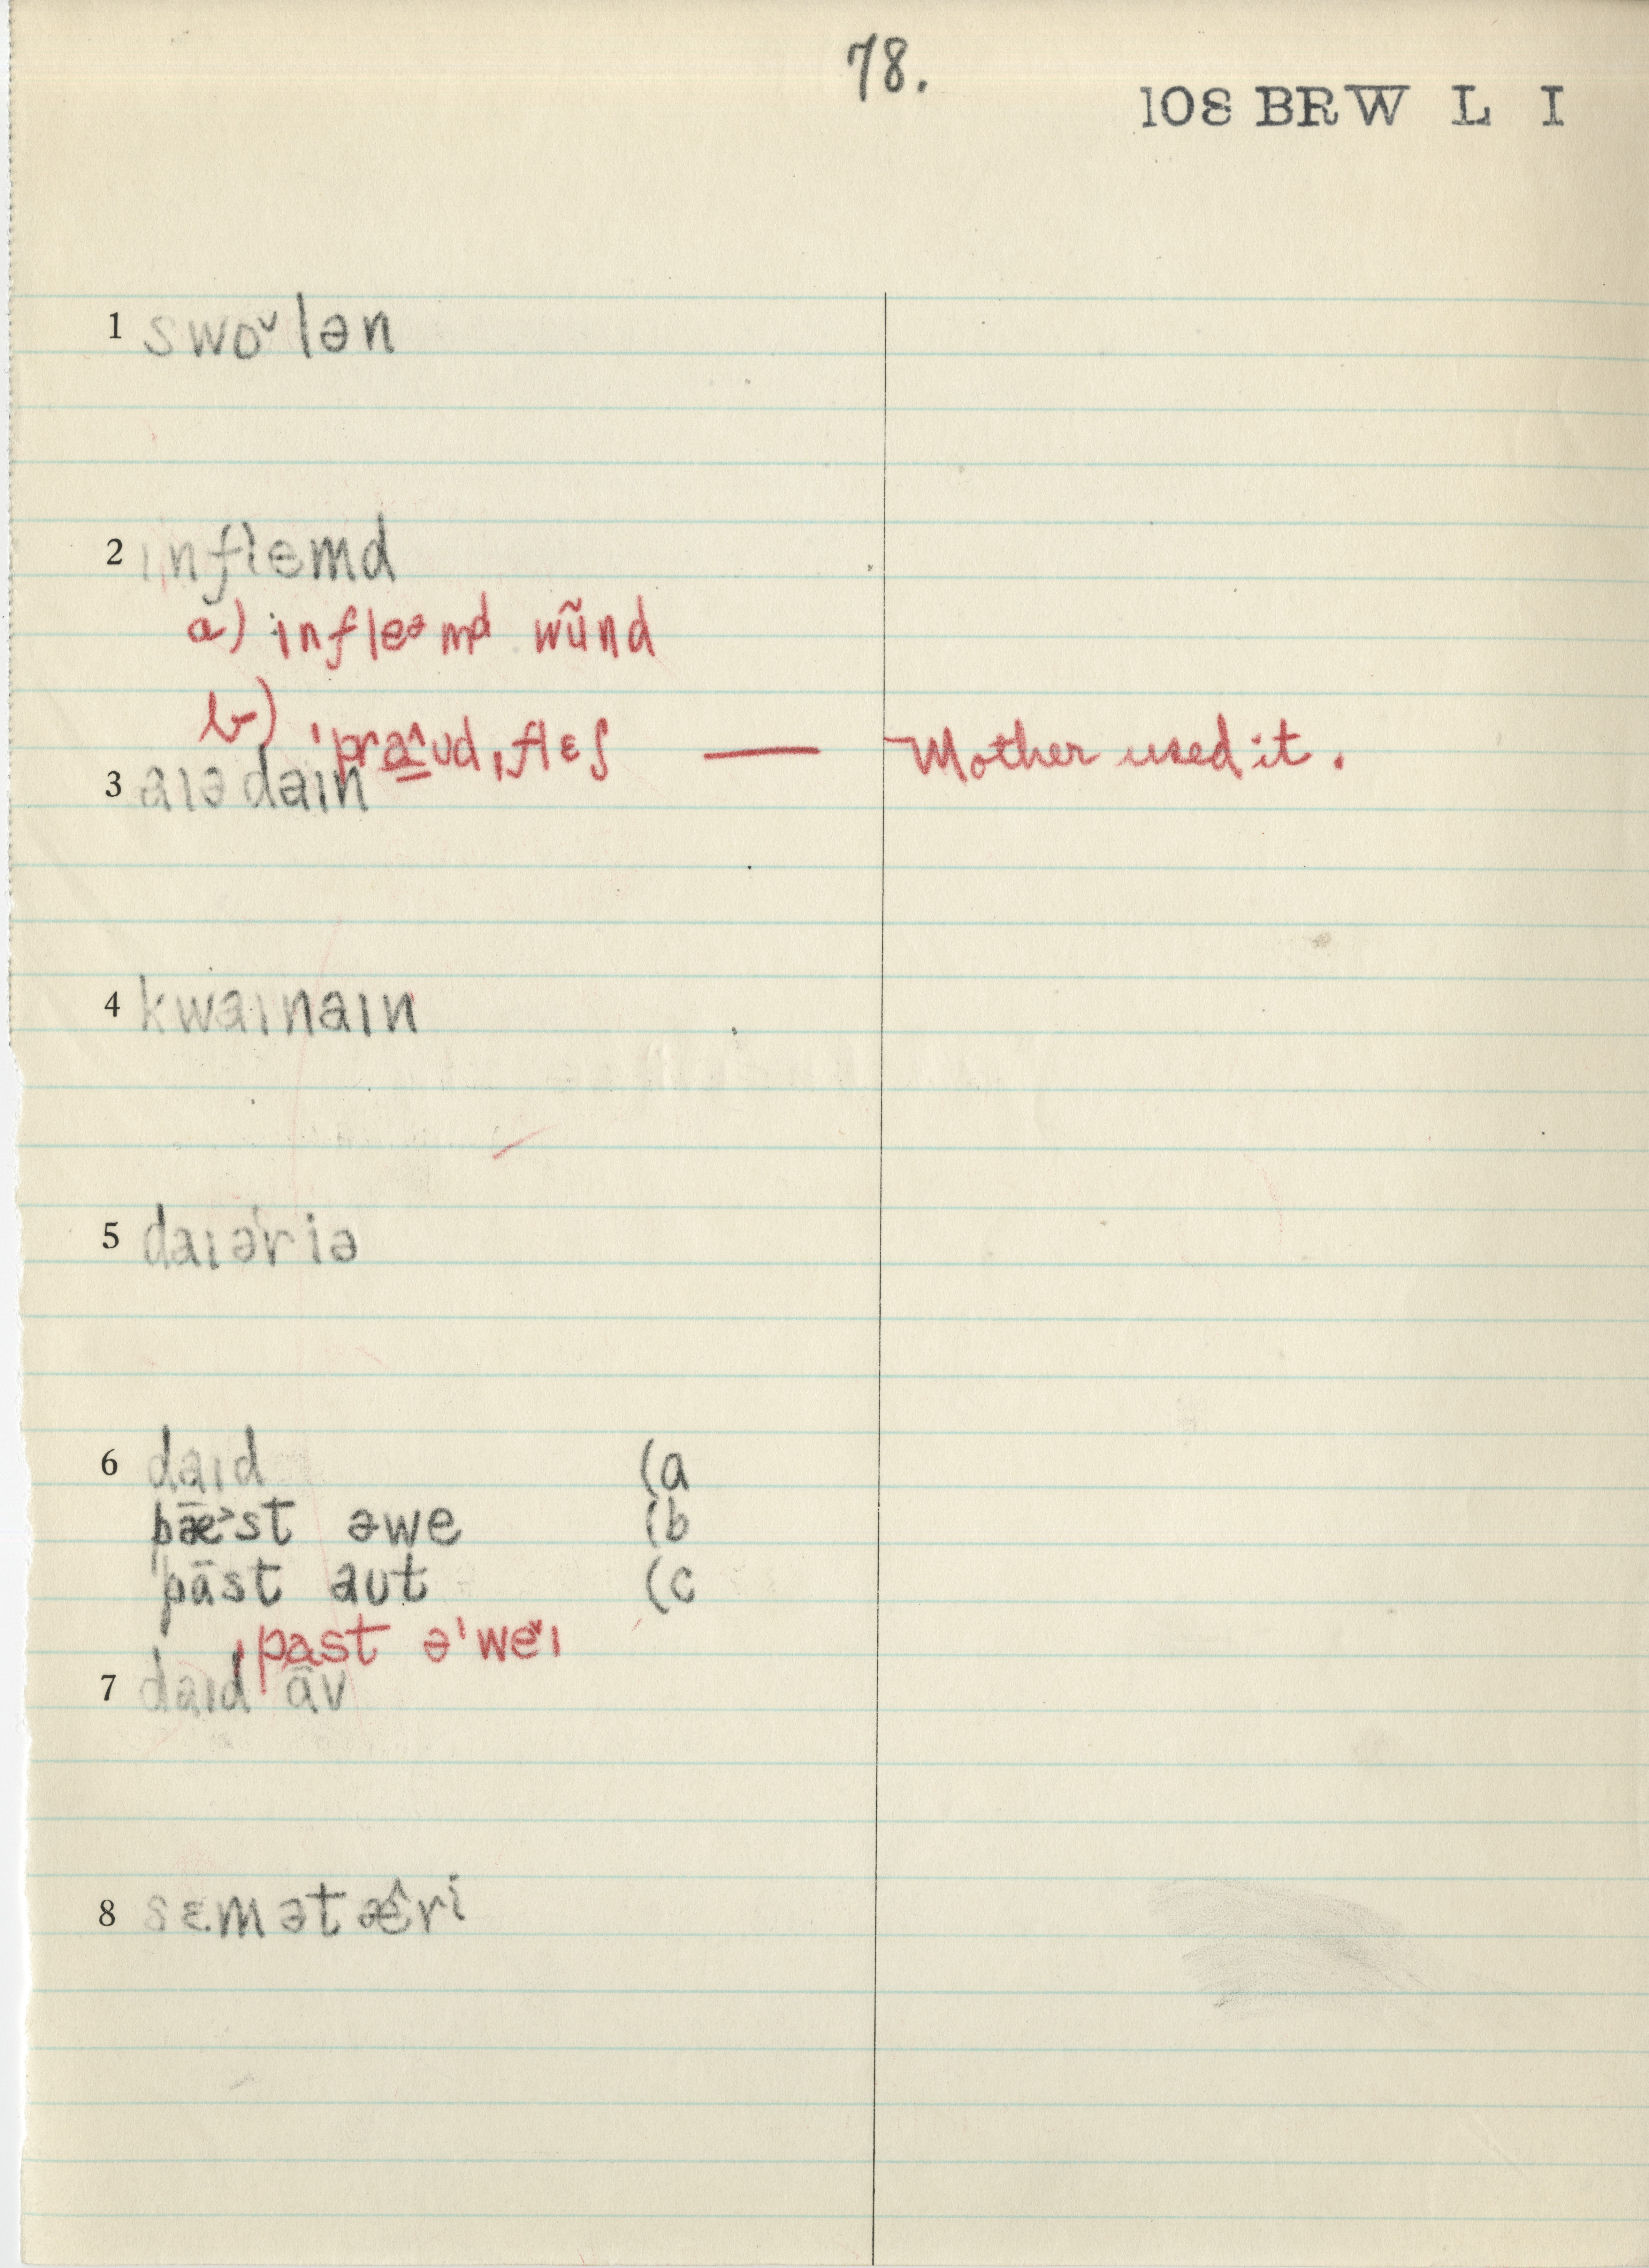 78.
108 BRW L I
1 swo˅lən
2 ɪnflemd
a) ɪnfleᵊmd wũnd
b) ˈpra̲˄ʊd,flɛʃ — Mother used it.
3 aɪədaɪn
4 kwaɪnaɪn
5 daɪəˈriə
6 daɪd (a
pǣ˃st əwe (b
pāst aʊt (c
ˌpast əˈwe˅ɪ
7 daɪd āv
8 sɛmətæ̂ri